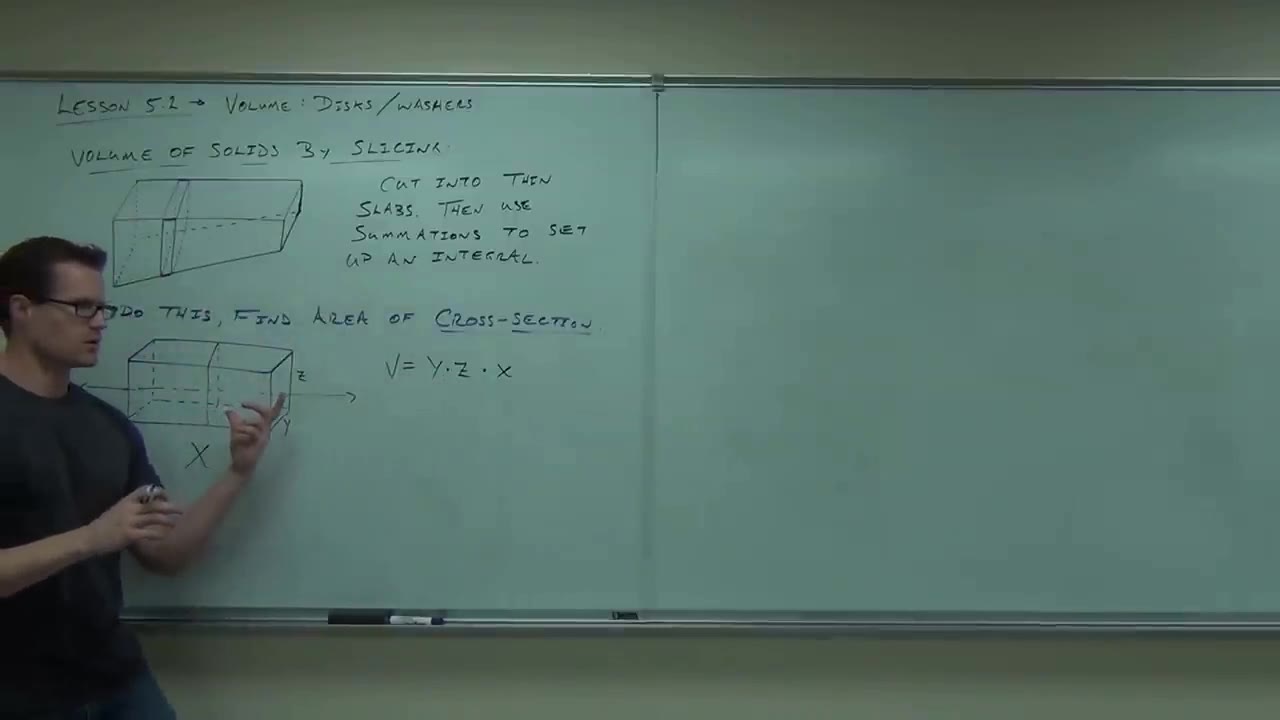 LESSON 5.2 → VOLUME: DISKS/WASHERS
VOLUME OF SOLIDS BY SLICING:
CUT INTO THIN
SLABS. THEN USE
SUMMATIONS TO SET
UP AN INTEGRAL.
DO THIS, FIND AREA OF CROSS-SECTION.
Z
V = Y · Z · X
Y
X